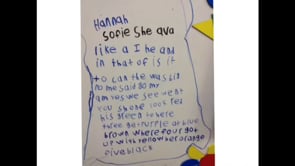 Hannah
sofie she ava
like a I he and
in that of is it
to can the was
no me said go my
am yes we see went
you she one look red
his green to here
three go purple at blue
brown where four got
up with yellow her orange
five black